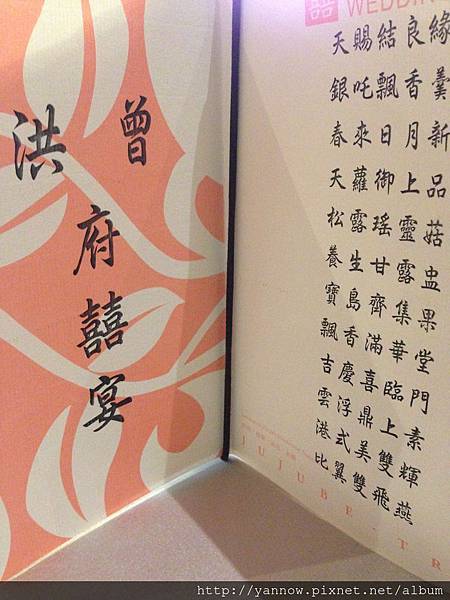 曾 洪
府囍宴
囍 WEDDIN
天賜結良緣
銀吒飄香羹
春來日月新
天蘿御上品
松露瑤靈菇
養生甘露盅
寶島齊集果
飄香滿華堂
吉慶喜臨門
雲浮鼎上素
港式美雙輝
比翼雙飛燕
JUJUBE-TR
http://yannow.pixnet.net/album